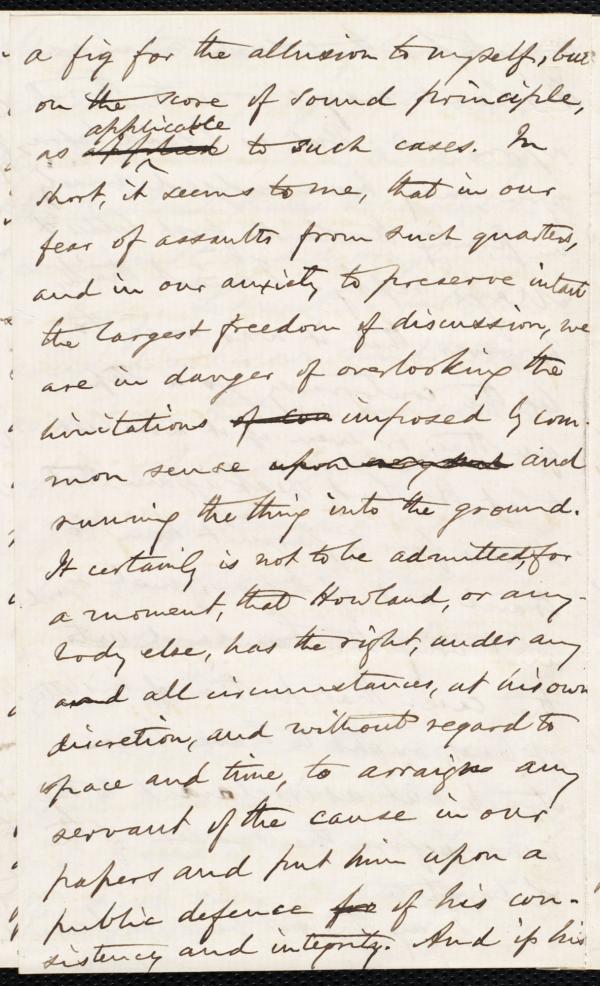 a fig for the allusion to myself, but
on the score of sound principle,
applicable
as to such cases. In
short, it seems to me, that in our
fear of assaults from such quarters,
and in our anxiety to preserve intact
the largest freedom of discussion, we
are in danger of overlooking the
limitations of con imposed by com-
mon sense upon every such and
running the thing into the ground.
It certainly is not to be admitted, for
a moment, that Howland, or any-
body else, has the right, under any
and all circumstances, at his own
discretion, and without regard to
space and time, to arraign any
servant of the cause in our
papers and put him upon a
public defence for of his con-
sistency and integrity. And if his